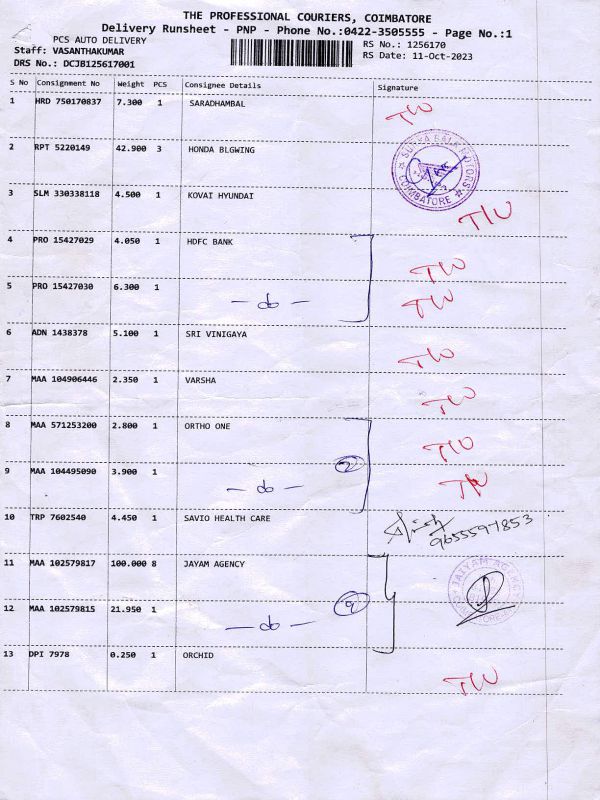 THE PROFESSIONAL COURIERS, COIMBATORE
Delivery Runsheet - PNP - Phone No.:0422-3505555 - Page No.:1
PCS AUTO DELIVERY
Staff: VASANTHAKUMAR
DRS No.: DCJB125617001
RS No.: 1256170
RS Date: 11-Oct-2023
S No Consignment No Weight PCS Consignee Details Signature
1 HRD 750170837 7.300 1 SARADHAMBAL T/U
2 RPT 5220149 42.900 3 HONDA BLGWING
MOTORS
COIMBATORE
3 SLM 330338118 4.500 1 KOVAI HYUNDAI T/U
4 PRO 15427029 4.050 1 HDFC BANK T/U
5 PRO 15427030 6.300 1 - do - T/U
6 ADN 1438378 5.100 1 SRI VINIGAYA T/U
7 MAA 104906446 2.350 1 VARSHA T/U
8 MAA 571253200 2.800 1 ORTHO ONE T/U
9 MAA 104495090 3.900 1 - do - 2 T/U
10 TRP 7602540 4.450 1 SAVIO HEALTH CARE
9655597853
11 MAA 102579817 100.000 8 JAYAM AGENCY
12 MAA 102579815 21.950 1 - do - 9
13 DPI 7978 0.250 1 ORCHID T/U